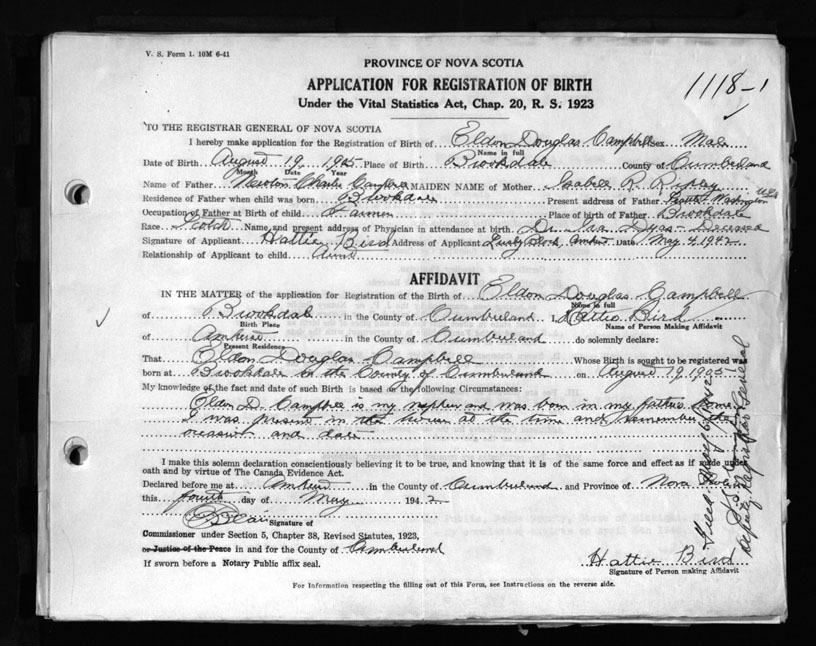 V. S. Form 1. 10M 6-41
PROVINCE OF NOVA SCOTIA
APPLICATION FOR REGISTRATION OF BIRTH
1118-1
Under the Vital Statistics Act, Chap. 20, R. S. 1923
TO THE REGISTRAR GENERAL OF NOVA SCOTIA
I hereby make application for the Registration of Birth of Eldon Douglas Campbell sex Male
Name in full
Date of Birth August 19 1905 Place of Birth Brookdale County of Cumberland
Month Date Year
Name of Father Charles Campbell MAIDEN NAME of Mother Isabel R. Ripley
Residence of Father when child was born Brookdale Present address of Father Seattle Washington USA
Occupation of Father at Birth of child Farmer Place of birth of Father Brookdale
Race Scotch Name and present address of Physician in attendance at birth Dr. Deceased
Signature of Applicant Hattie Bird Address of Applicant Amherst Date May 4 1942
Relationship of Applicant to child Aunt
AFFIDAVIT
IN THE MATTER of the application for Registration of the Birth of Eldon Douglas Campbell
Name in full
of Brookdale in the County of Cumberland I, Hattie Bird
Birth Place Name of Person Making Affidavit
of Amherst in the County of Cumberland do solemnly declare:
Present Residence
That Eldon Douglas Campbell Whose Birth is sought to be registered was
born at Brookdale in the County of Cumberland on August 19, 1905
My knowledge of the fact and date of such Birth is based on the following Circumstances:
Eldon D. Campbell is my nephew and was born in my father's home.
I was present in the house at the time and remember the
and date
I make this solemn declaration conscientiously believing it to be true, and knowing that it is of the same force and effect as if made under
oath and by virtue of The Canada Evidence Act.
Declared before me at Amherst in the County of Cumberland and Province of Nova Scotia
this fourth day of May 1942
Signature of
Commissioner under Section 5, Chapter 38, Revised Statutes, 1923,
or Justice of the Peace in and for the County of Cumberland
If sworn before a Notary Public affix seal.
Hattie Bird
Signature of Person making Affidavit
For Information respecting the filling out of this Form, see Instructions on the reverse side.
Filed May
Deputy Registrar General